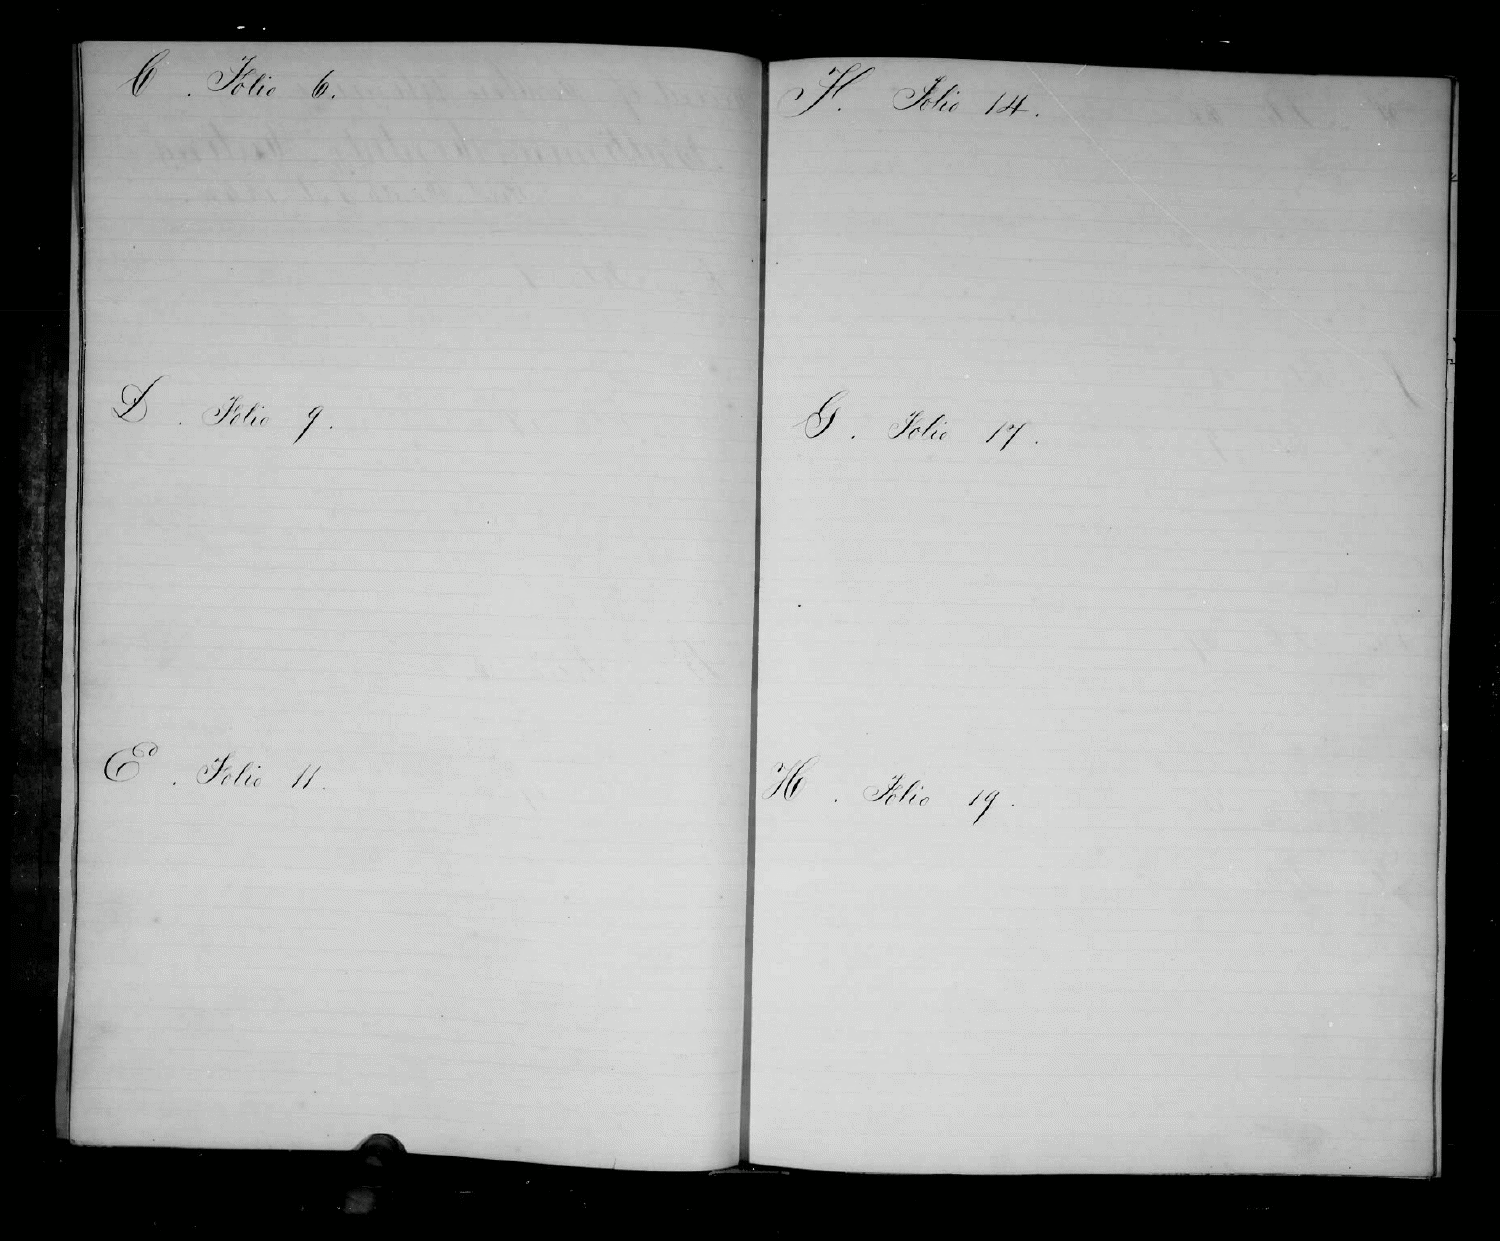 C. Folio 6.
D. Folio 9.
E. Folio 11.
F. Folio 14.
G. Folio 17.
H. Folio 19.